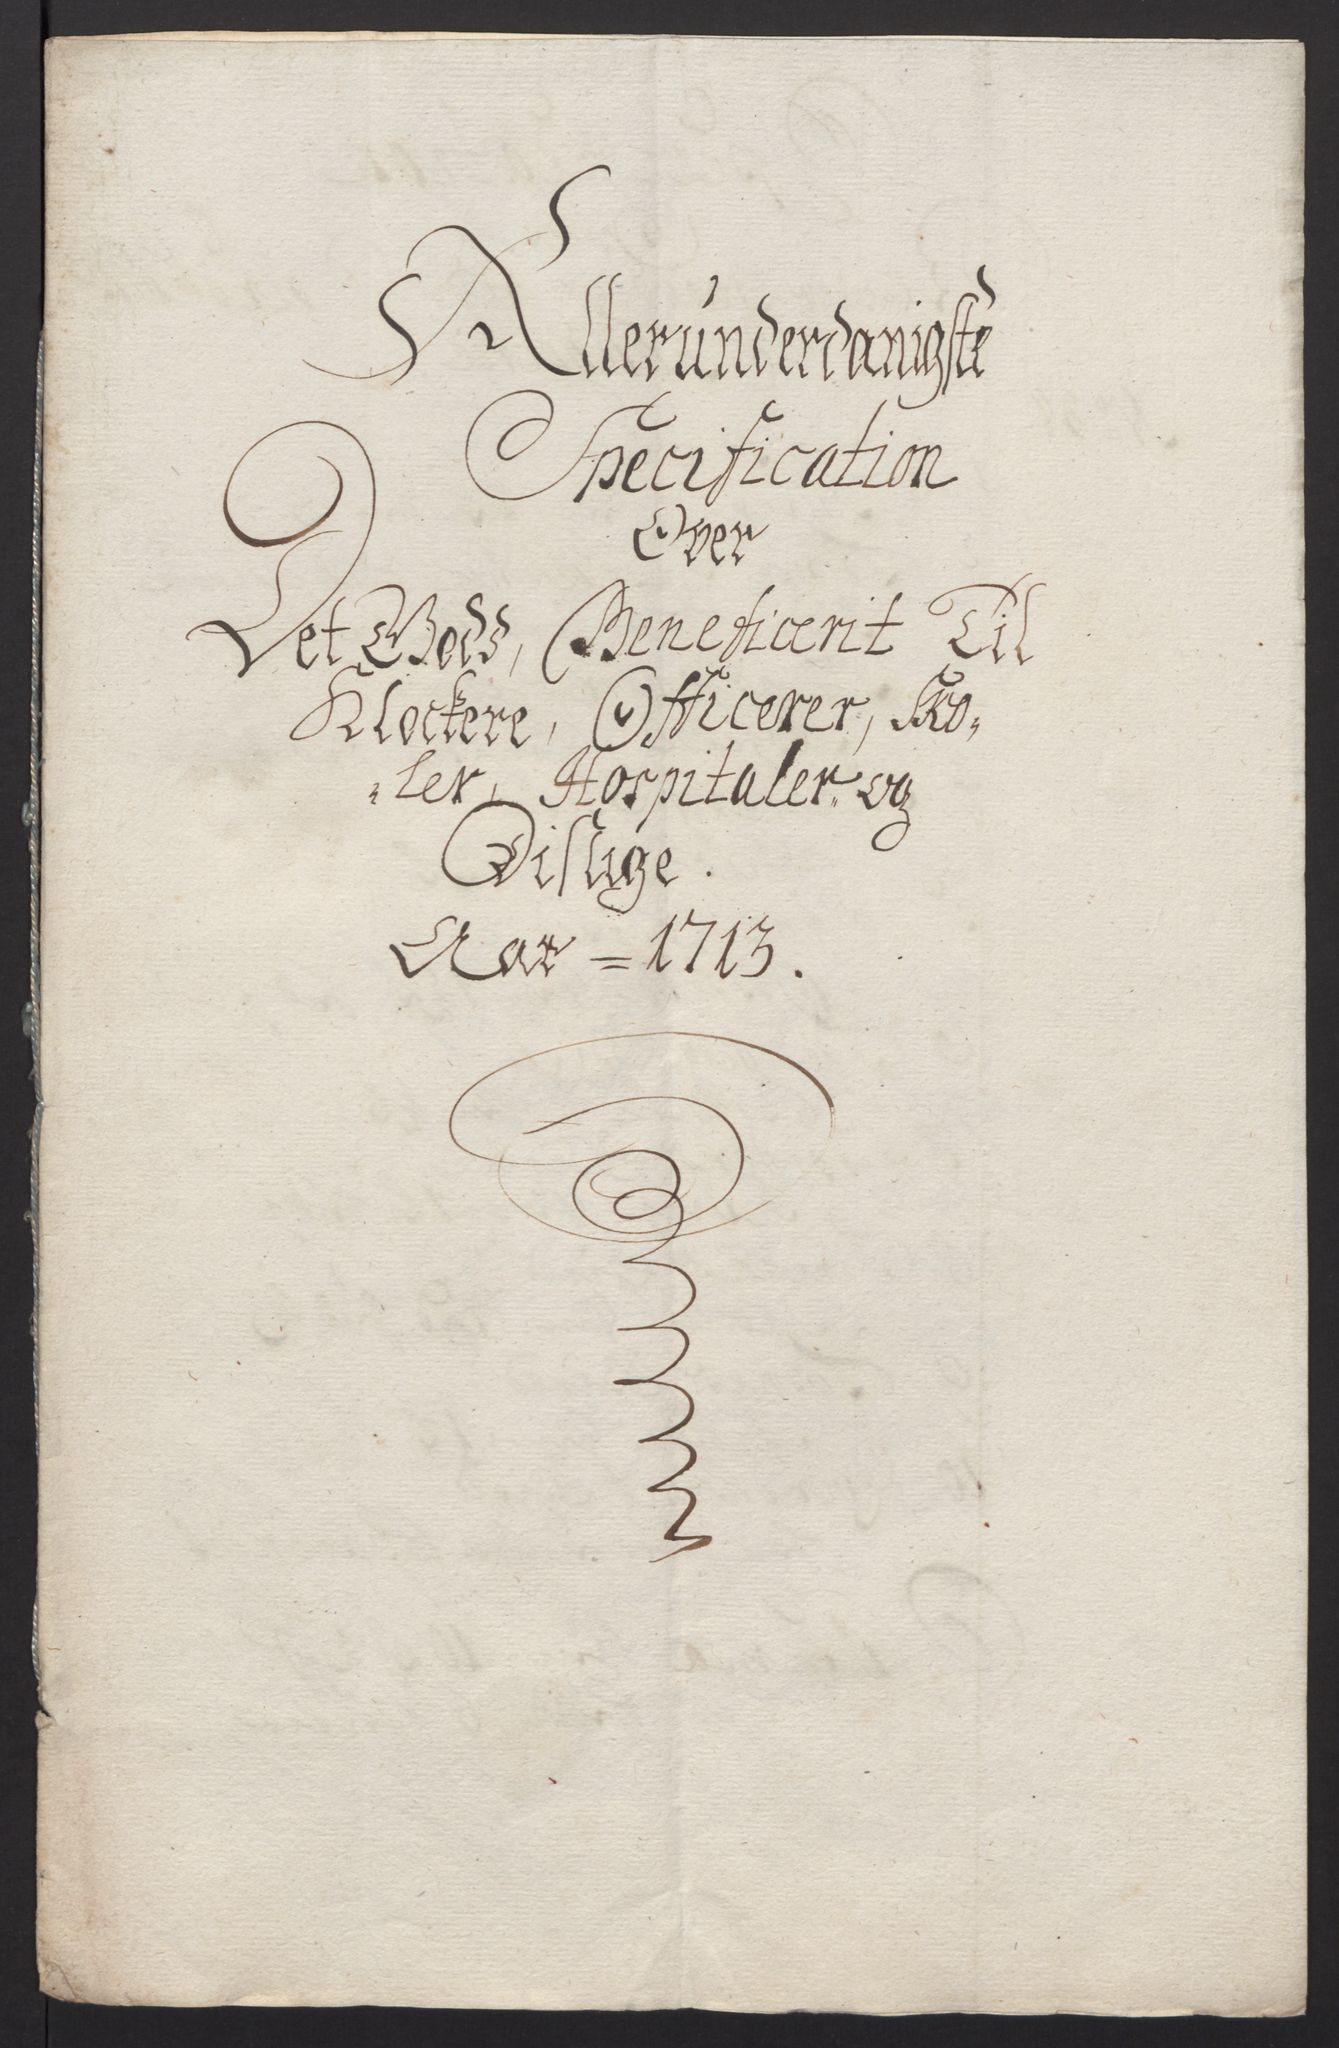 Allerúnderdanigste
Specification
Over
Det Gods, Beneficerit Til
Klockere, Officerer, Sko-
-ler, Hospitaler og
Dislige.
Aar = 1713.